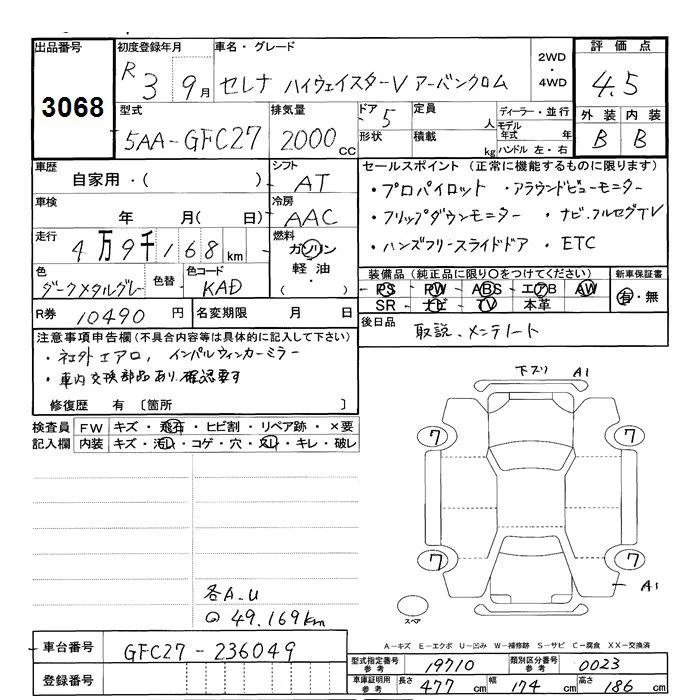 出品番号 3068
初度登録年月 R 3年 9月
車名・グレード セレナ ハイウェイスターV アーバンクロム
2WD ・ 4WD
評価点 4.5
外装 B 内装 B
型式 5AA-GFC27
排気量 2000cc
ドア 5
形状
定員 人
積載 kg
ディーラー・並行
モデル年式 年
ハンドル 左・右
車歴 自家用・( )
シフト AT
車検 年 月( 日)
冷房 AAC
走行 4万9千168km
燃料 ガソリン 軽油 ・( )
色 ダークメタルグレー
色替
色コード KAD
R券 10490円
名変期限 月 日
セールスポイント(正常に機能するものに限ります)
・プロパイロット ・アラウンドビューモニター
・フリップダウンモニター ・ナビ.フルセグTV
・ハンズフリースライドドア ・ETC
装備品(純正品に限り○をつけてください)
PS・PW・ABS・エアB・AW
SR・ナビ・TV・本革
新車保証書 有・無
後日品 取説.メンテノート
注意事項申告欄(不具合内容等は具体的に記入して下さい)
・社外エアロ, インパルウィンカーミラー
・車内交換部品あり.確認要す
修復歴 有〔箇所 〕
検査員記入欄
FW キズ・飛石・ヒビ割・リペア跡・×要
内装 キズ・汚れ・コゲ・穴・スレ・キレ・破レ
下スリ A1
7 7
7 7
A1
スペア
各A.U
49.169km
A-キズ E-エクボ U-凹み W-補修跡 S-サビ C-腐食 XX-交換済
車台番号 GFC27-236049
登録番号
型式指定番号 参考 19710
類別区分番号 参考 0023
車庫証明用 参考 長さ 477cm 幅 174cm 高さ 186cm